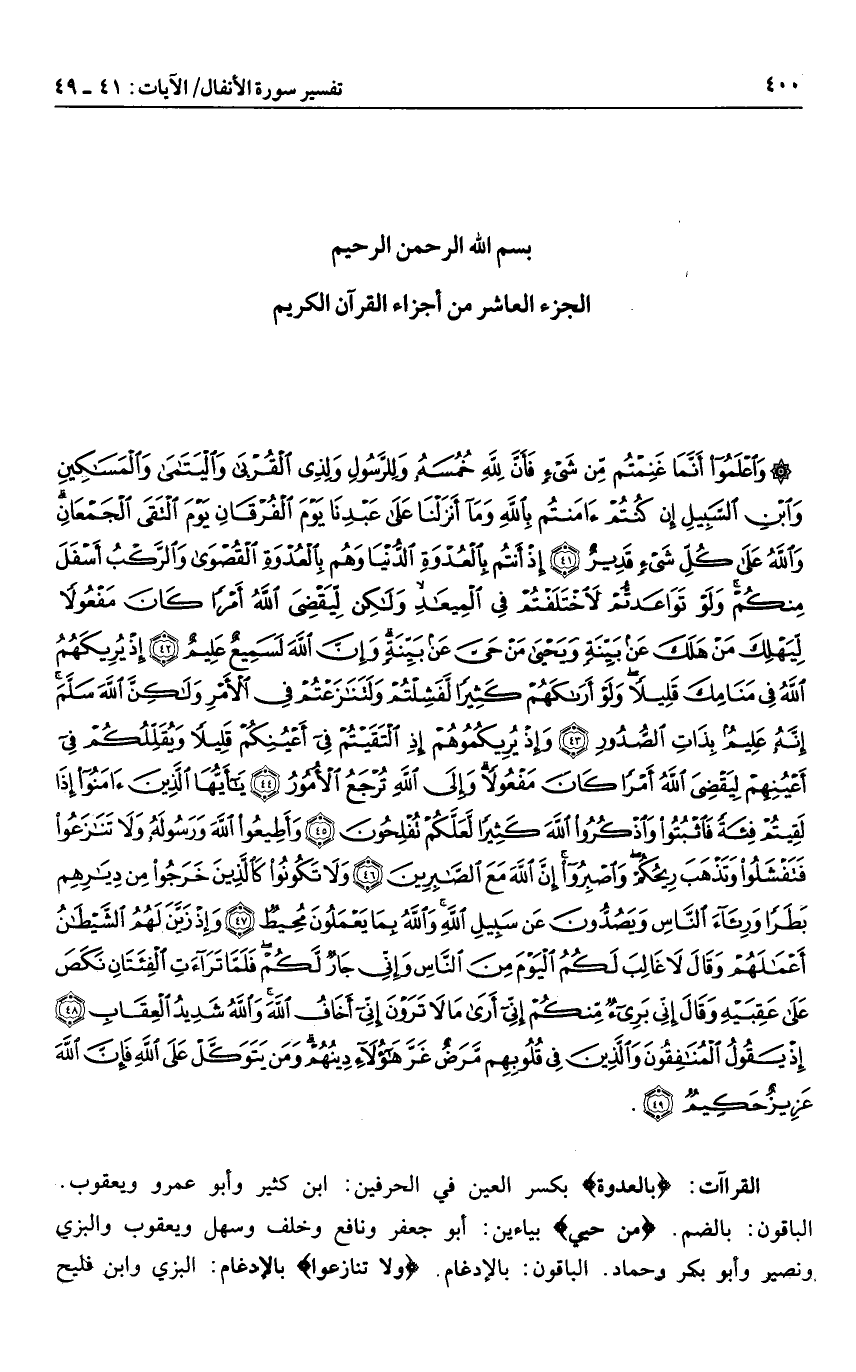 ٤٠٠
تفسير سورة الأنفال/ الآيات: ٤١ - ٤٩
بسم الله الرحمن الرحيم
الجزء العاشر من أجزاء القرآن الكريم
۞ وَٱعْلَمُوٓا۟ أَنَّمَا غَنِمْتُم مِّن شَىْءٍ فَأَنَّ لِلَّهِ خُمُسَهُۥ وَلِلرَّسُولِ وَلِذِى ٱلْقُرْبَىٰ وَٱلْيَتَٰمَىٰ وَٱلْمَسَٰكِينِ
وَٱبْنِ ٱلسَّبِيلِ إِن كُنتُمْ ءَامَنتُم بِٱللَّهِ وَمَآ أَنزَلْنَا عَلَىٰ عَبْدِنَا يَوْمَ ٱلْفُرْقَانِ يَوْمَ ٱلْتَقَى ٱلْجَمْعَانِ ۗ
وَٱللَّهُ عَلَىٰ كُلِّ شَىْءٍ قَدِيرٌ ٤١ إِذْ أَنتُم بِٱلْعُدْوَةِ ٱلدُّنْيَا وَهُم بِٱلْعُدْوَةِ ٱلْقُصْوَىٰ وَٱلرَّكْبُ أَسْفَلَ
مِنكُمْ ۚ وَلَوْ تَوَاعَدتُّمْ لَٱخْتَلَفْتُمْ فِى ٱلْمِيعَٰدِ ۙ وَلَٰكِن لِّيَقْضِىَ ٱللَّهُ أَمْرًا كَانَ مَفْعُولًا
لِّيَهْلِكَ مَنْ هَلَكَ عَنۢ بَيِّنَةٍ وَيَحْيَىٰ مَنْ حَىَّ عَنۢ بَيِّنَةٍ ۗ وَإِنَّ ٱللَّهَ لَسَمِيعٌ عَلِيمٌ ٤٢ إِذْ يُرِيكَهُمُ
ٱللَّهُ فِى مَنَامِكَ قَلِيلًا ۖ وَلَوْ أَرَىٰكَهُمْ كَثِيرًا لَّفَشِلْتُمْ وَلَتَنَٰزَعْتُمْ فِى ٱلْأَمْرِ وَلَٰكِنَّ ٱللَّهَ سَلَّمَ ۗ
إِنَّهُۥ عَلِيمٌۢ بِذَاتِ ٱلصُّدُورِ ٤٣ وَإِذْ يُرِيكُمُوهُمْ إِذِ ٱلْتَقَيْتُمْ فِىٓ أَعْيُنِكُمْ قَلِيلًا وَيُقَلِّلُكُمْ فِىٓ
أَعْيُنِهِمْ لِيَقْضِىَ ٱللَّهُ أَمْرًا كَانَ مَفْعُولًا ۗ وَإِلَى ٱللَّهِ تُرْجَعُ ٱلْأُمُورُ ٤٤ يَٰٓأَيُّهَا ٱلَّذِينَ ءَامَنُوٓا۟ إِذَا
لَقِيتُمْ فِئَةً فَٱثْبُتُوا۟ وَٱذْكُرُوا۟ ٱللَّهَ كَثِيرًا لَّعَلَّكُمْ تُفْلِحُونَ ٤٥ وَأَطِيعُوا۟ ٱللَّهَ وَرَسُولَهُۥ وَلَا تَنَٰزَعُوا۟
فَتَفْشَلُوا۟ وَتَذْهَبَ رِيحُكُمْ ۖ وَٱصْبِرُوٓا۟ ۚ إِنَّ ٱللَّهَ مَعَ ٱلصَّٰبِرِينَ ٤٦ وَلَا تَكُونُوا۟ كَٱلَّذِينَ خَرَجُوا۟ مِن دِيَٰرِهِم
بَطَرًا وَرِئَآءَ ٱلنَّاسِ وَيَصُدُّونَ عَن سَبِيلِ ٱللَّهِ ۚ وَٱللَّهُ بِمَا يَعْمَلُونَ مُحِيطٌ ٤٧ وَإِذْ زَيَّنَ لَهُمُ ٱلشَّيْطَٰنُ
أَعْمَٰلَهُمْ وَقَالَ لَا غَالِبَ لَكُمُ ٱلْيَوْمَ مِنَ ٱلنَّاسِ وَإِنِّى جَارٌ لَّكُمْ ۖ فَلَمَّا تَرَآءَتِ ٱلْفِئَتَانِ نَكَصَ
عَلَىٰ عَقِبَيْهِ وَقَالَ إِنِّى بَرِىٓءٌ مِّنكُمْ إِنِّىٓ أَرَىٰ مَا لَا تَرَوْنَ إِنِّىٓ أَخَافُ ٱللَّهَ ۚ وَٱللَّهُ شَدِيدُ ٱلْعِقَابِ ٤٨
إِذْ يَقُولُ ٱلْمُنَٰفِقُونَ وَٱلَّذِينَ فِى قُلُوبِهِم مَّرَضٌ غَرَّ هَٰٓؤُلَآءِ دِينُهُمْ ۗ وَمَن يَتَوَكَّلْ عَلَى ٱللَّهِ فَإِنَّ ٱللَّهَ
عَزِيزٌ حَكِيمٌ ٤٩ .
القراآت: ﴿بالعدوة﴾ بكسر العين في الحرفين: ابن كثير وأبو عمرو ويعقوب.
الباقون: بالضم. ﴿من حيي﴾ بياءين: أبو جعفر ونافع وخلف وسهل ويعقوب والبزي
ونصير وأبو بكر وحماد. الباقون: بالإدغام. ﴿ولا تنازعوا﴾ بالإدغام: البزي وابن فليح